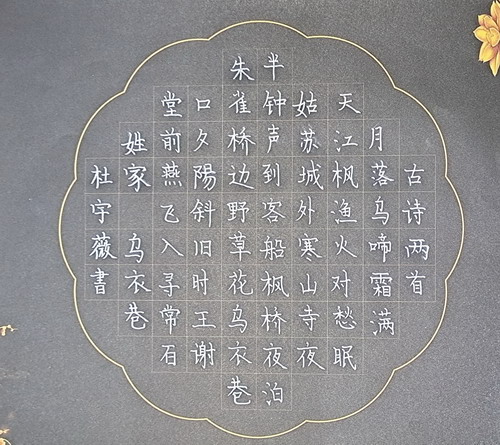 古诗两首
月落乌啼霜满
天江枫渔火对愁眠
姑苏城外寒山寺夜
半钟声到客船枫桥夜泊
朱雀桥边野草花乌衣巷
口夕陽斜旧时王谢
堂前燕飞入寻常石
姓家 乌衣巷
杜宇薇書